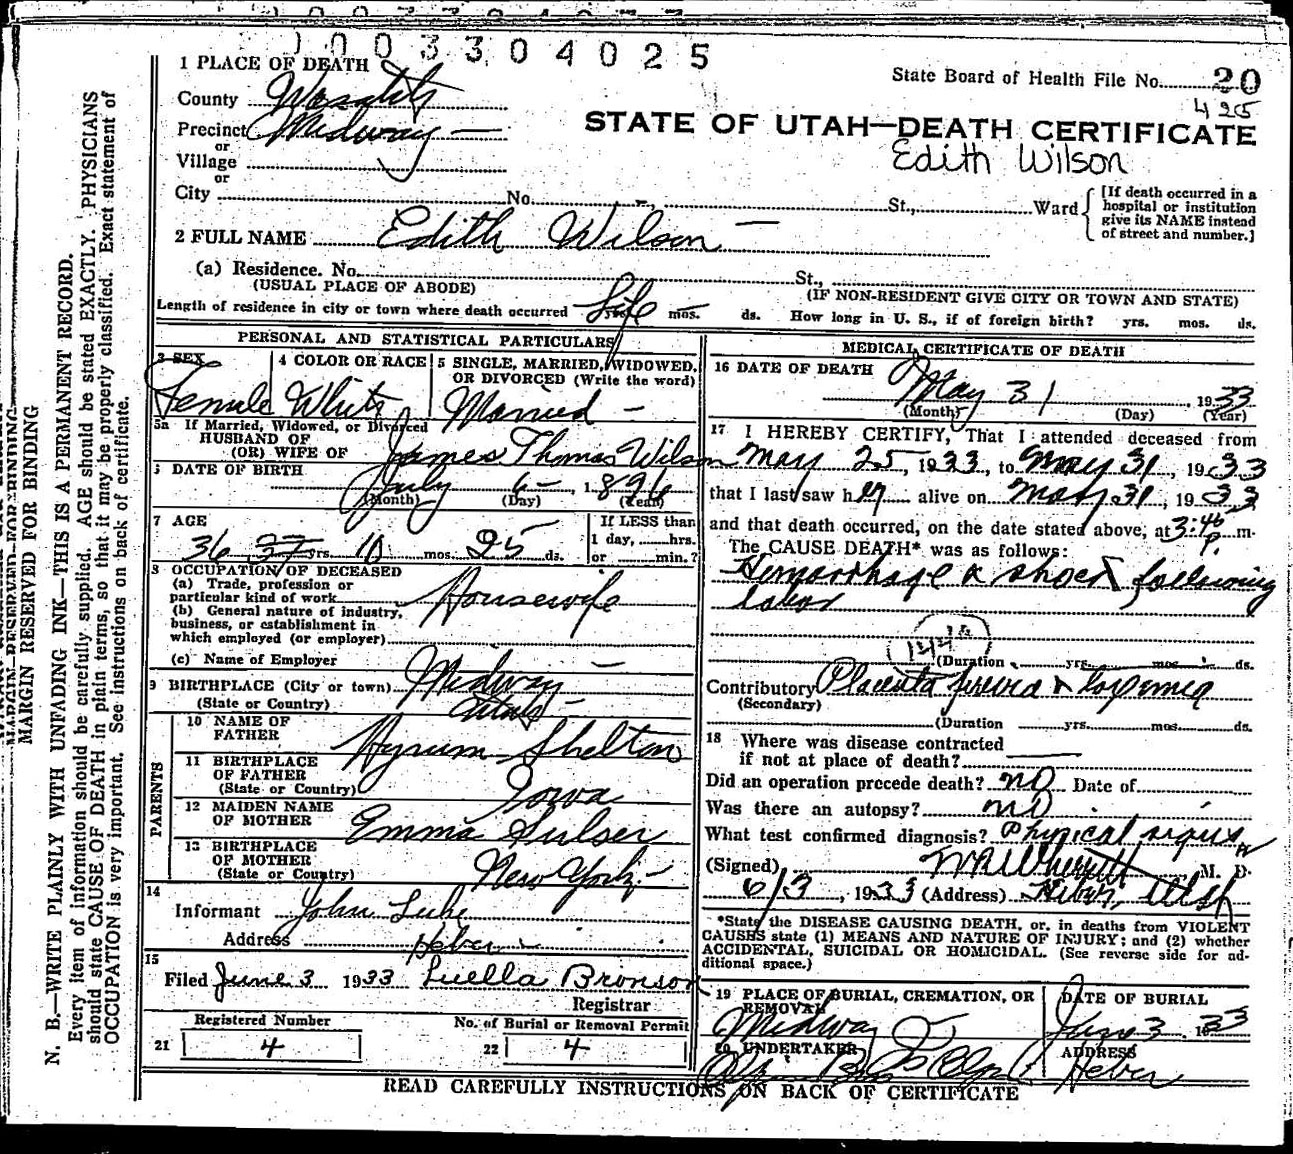 1003304025
State Board of Health File No. 20
425
1 PLACE OF DEATH
County Wasatch
Precinct Midway
or
Village
or
City No. St., Ward
[If death occurred in a hospital or institution give its NAME instead of street and number.]
STATE OF UTAH—DEATH CERTIFICATE
Edith Wilson
2 FULL NAME Edith Wilson
(a) Residence. No. St.,
(USUAL PLACE OF ABODE) (IF NON-RESIDENT GIVE CITY OR TOWN AND STATE)
Length of residence in city or town where death occurred Life mos. ds. How long in U. S., if of foreign birth? yrs. mos. ds.
PERSONAL AND STATISTICAL PARTICULARS
3 SEX Female
4 COLOR OR RACE White
5 SINGLE, MARRIED, WIDOWED, OR DIVORCED (Write the word) Married
5a If Married, Widowed, or Divorced
HUSBAND OF
(OR) WIFE OF James Thomas Wilson
6 DATE OF BIRTH July 6 1896
(Month) (Day) (Year)
7 AGE 36 37 yrs. 10 mos. 25 ds.
If LESS than
1 day, hrs.
or min.?
8 OCCUPATION OF DECEASED
(a) Trade, profession or
particular kind of work Housewife
(b) General nature of industry,
business, or establishment in
which employed (or employer)
(c) Name of Employer
9 BIRTHPLACE (City or town) Midway
(State or Country) Utah
PARENTS
10 NAME OF
FATHER Hyrum Shelton
11 BIRTHPLACE
OF FATHER
(State or Country) Iowa
12 MAIDEN NAME
OF MOTHER Emma Sulser
13 BIRTHPLACE
OF MOTHER
(State or Country) New York
14
Informant John Luke
Address Heber
15
Filed June 3 1933 Luella Bronson
Registrar
Registered Number
21 4
No. of Burial or Removal Permit
22 4
MEDICAL CERTIFICATE OF DEATH
16 DATE OF DEATH May 31, 1933
(Month) (Day) (Year)
17 I HEREBY CERTIFY, That I attended deceased from
May 25, 1933, to May 31, 1933
that I last saw her alive on May 31, 1933
and that death occurred, on the date stated above, at 3:46 P. m.
The CAUSE DEATH* was as follows:
Hemorrhage & shock following
labor
(Duration yrs. mos. ds.
Contributory Placenta previa &
(Secondary)
(Duration yrs. mos. ds.
18 Where was disease contracted
if not at place of death?
Did an operation precede death? no Date of
Was there an autopsy? no
What test confirmed diagnosis? Physical signs
(Signed) M. D.
6/3, 1933 (Address) Heber, Utah
*State the DISEASE CAUSING DEATH, or, in deaths from VIOLENT
CAUSES state (1) MEANS AND NATURE OF INJURY; and (2) whether
ACCIDENTAL, SUICIDAL OR HOMICIDAL. (See reverse side for ad-
ditional space.)
19 PLACE OF BURIAL, CREMATION, OR
REMOVAL
Midway
DATE OF BURIAL
June 3 1933
20 UNDERTAKER
ADDRESS
Heber
READ CAREFULLY INSTRUCTIONS ON BACK OF CERTIFICATE
MARGIN RESERVED FOR BINDING
N. B.—WRITE PLAINLY WITH UNFADING INK—THIS IS A PERMANENT RECORD.
Every item of information should be carefully supplied. AGE should be stated EXACTLY. PHYSICIANS
should state CAUSE OF DEATH in plain terms, so that it may be properly classified. Exact statement of
OCCUPATION is very important. See instructions on back of certificate.